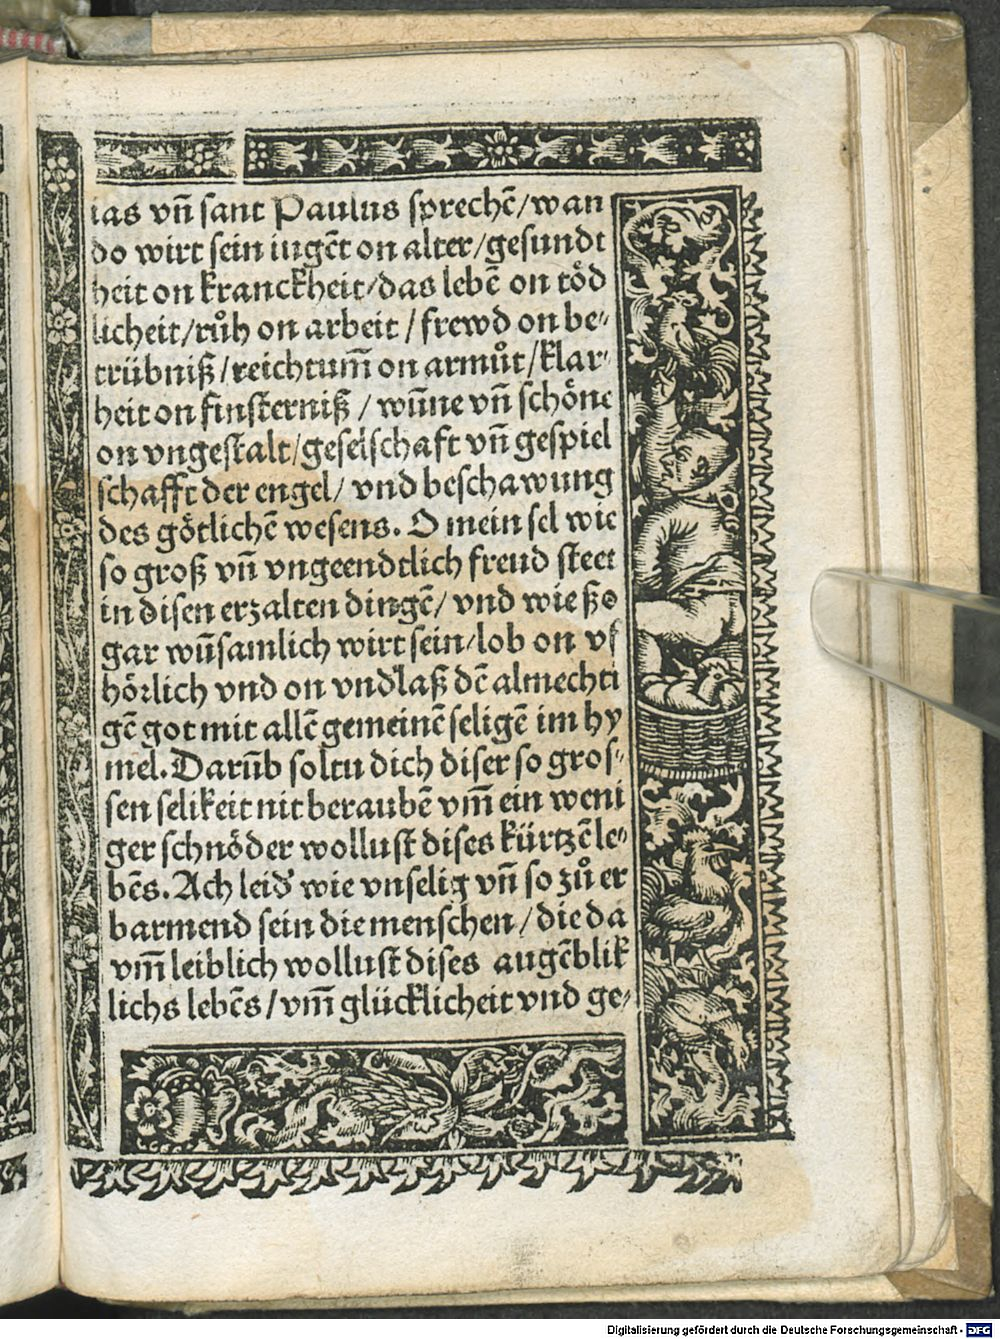 ias vn̄ sant Paulus sprechē/wan
do wirt sein iugēt on alter/gesundt
heit on kranckheit/das lebē on töd
licheit/růh on arbeit/frewd on be⸗
trübniß/reichtum̄ on armůt/klar⸗
heit on finsterniß/wūne vn̄ schöne
on vngestalt/geselschaft vn̄ gespiel
schafft der engel/vnd beschawung
des götlichē wesens. O mein sel wie
so groß vn̄ vngeendtlich freud steet
in disen erzalten dingē/vnd wie ßo
gar wūsamlich wirt sein/lob on vf
hörlich vnd on vndlaß dē almechti
gē got mit allē gemeinē seligē im hy
mel. Darūb soltu dich diser so gros⸗
sen selikeit nit beraubē vm̄ ein weni
ger schnöder wollust dises kürtzē le⸗
bēs. Ach leid' wie vnselig vn̄ so zů er
barmend sein die menschen/die da
vm̄ leiblich wollust dises augēblik
lichs lebēs/vm̄ glücklicheit vnd ge⸗
Digitalisierung gefördert durch die Deutsche Forschungsgemeinschaft - DFG